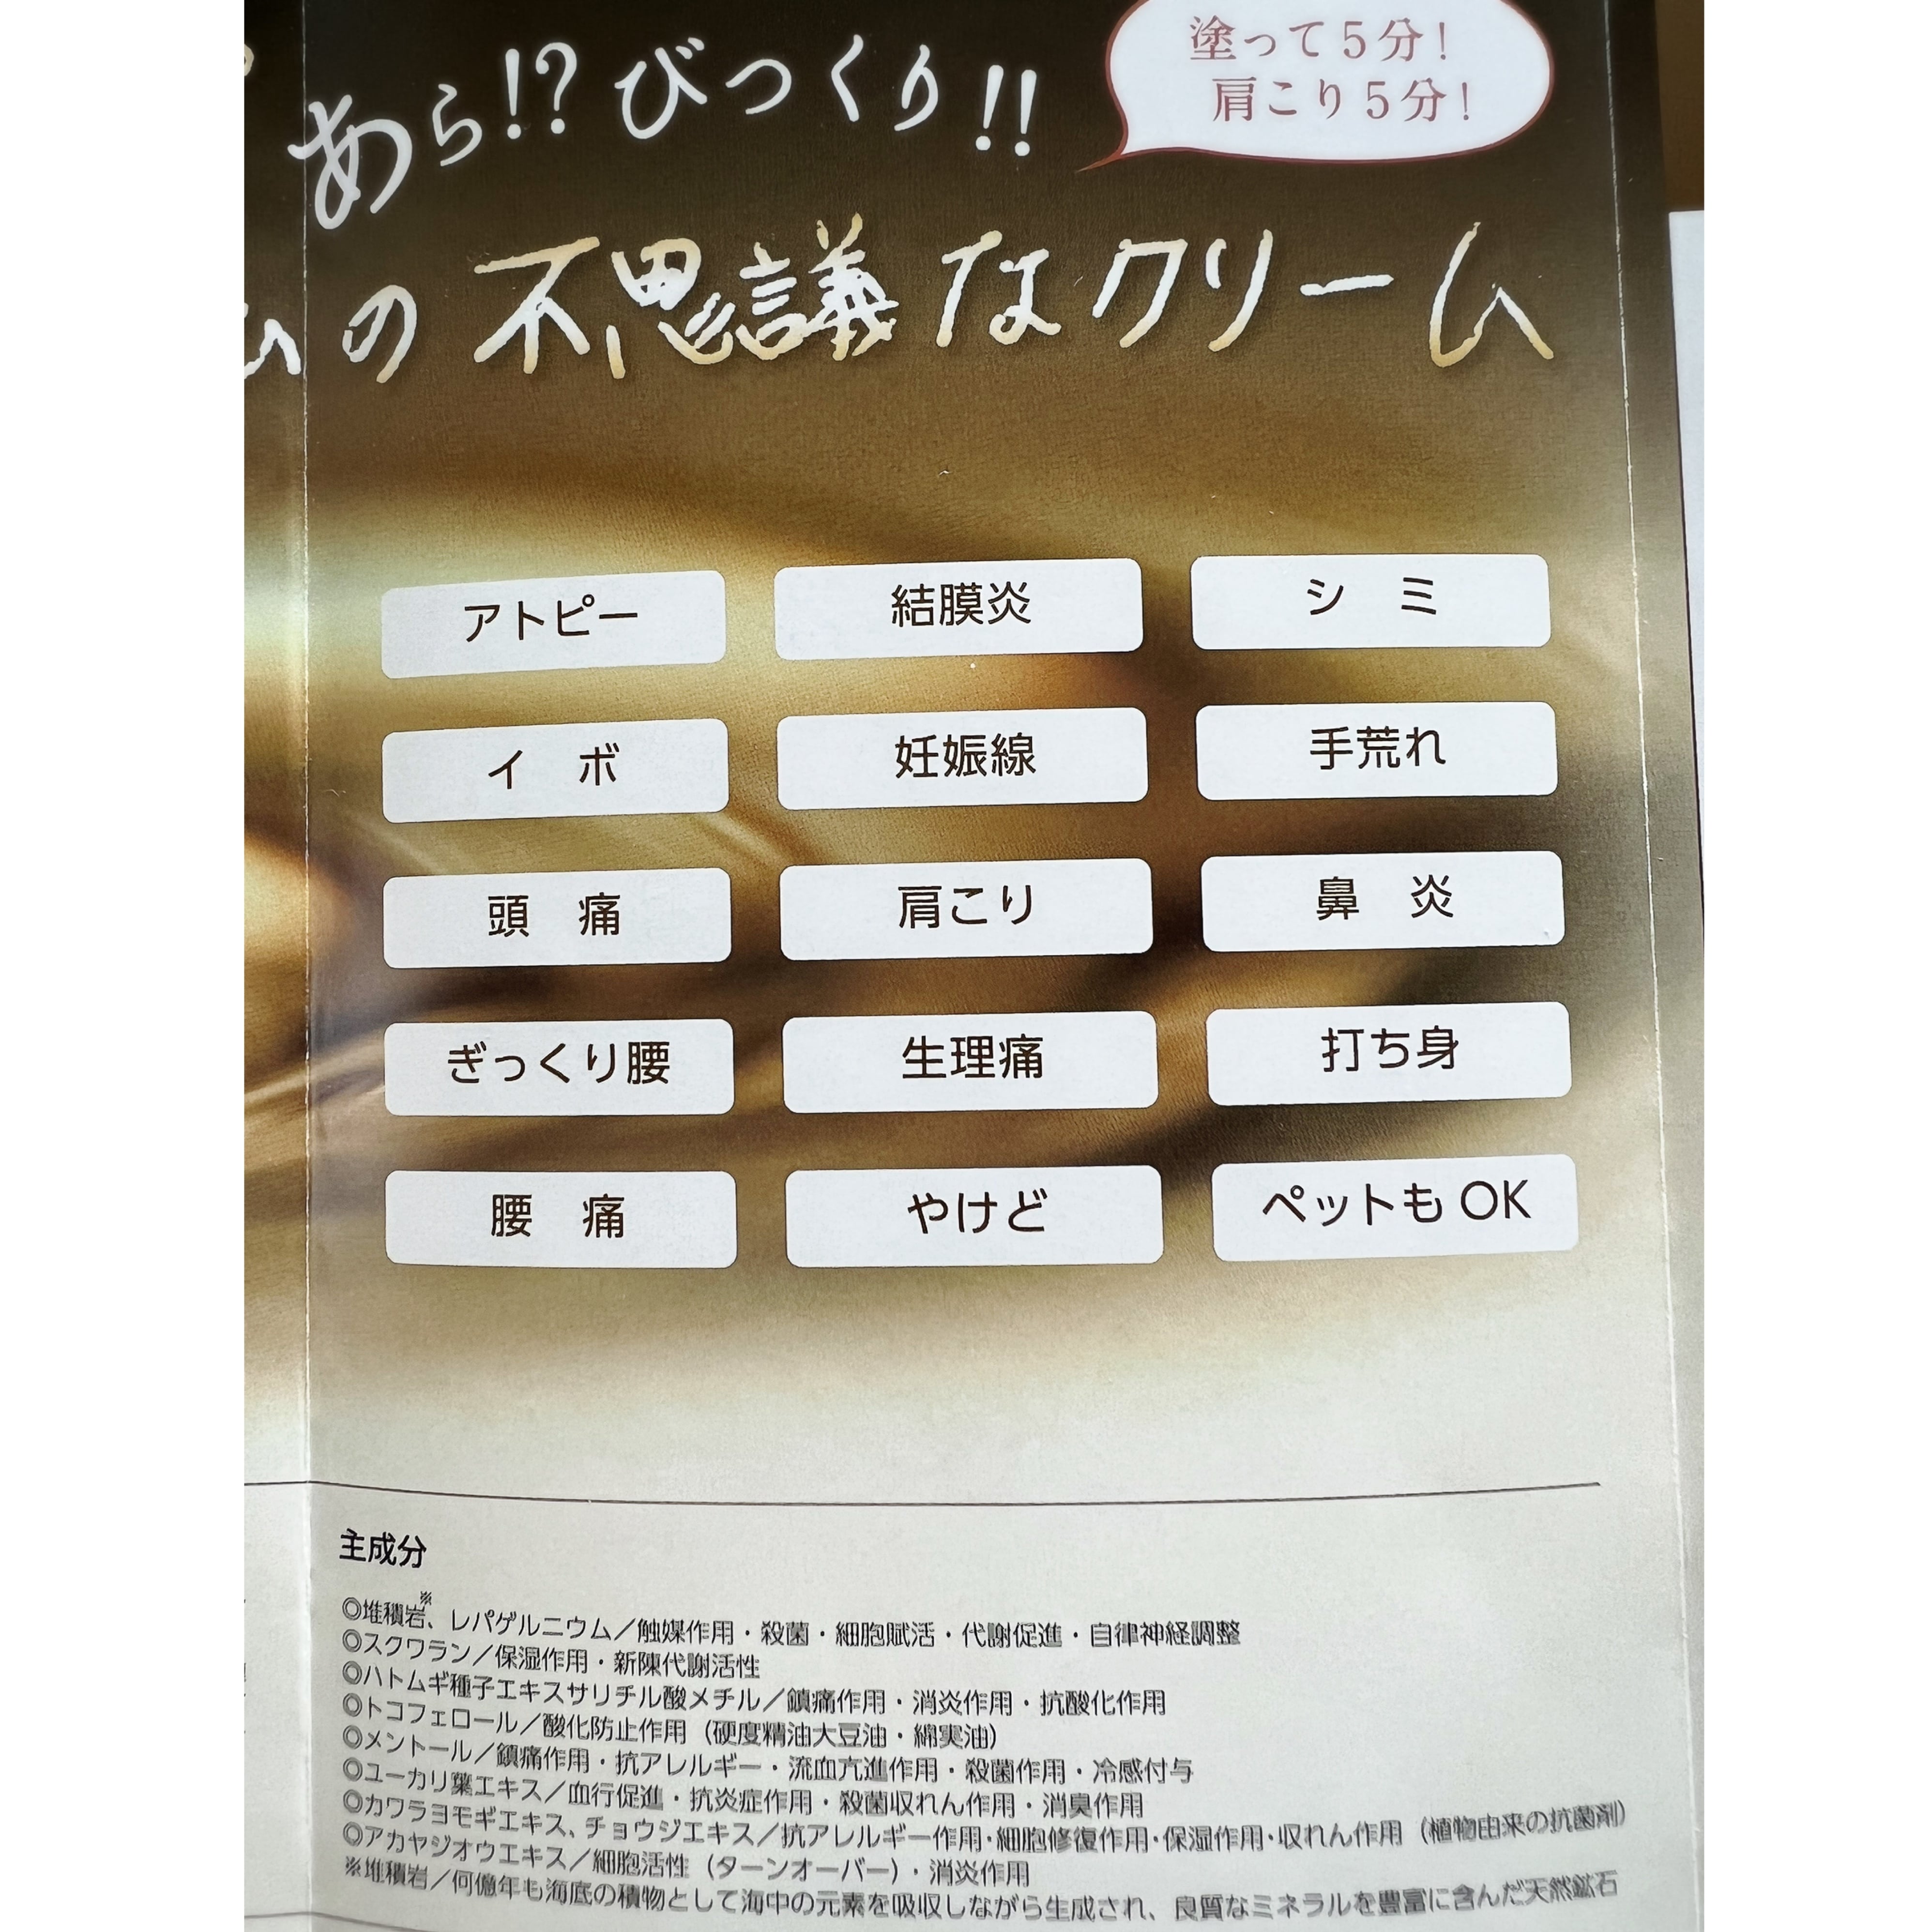 あら!?びっくり!!
塗って5分!
肩こり5分!
の不思議なクリーム
アトピー
結膜炎
シミ
イボ
妊娠線
手荒れ
頭痛
肩こり
鼻炎
ぎっくり腰
生理痛
打ち身
腰痛
やけど
ペットもOK
主成分
◎堆積岩※、レパゲルニウム／触媒作用・殺菌・細胞賦活・代謝促進・自律神経調整
◎スクワラン／保湿作用・新陳代謝活性
◎ハトムギ種子エキスサリチル酸メチル／鎮痛作用・消炎作用・抗酸化作用
◎トコフェロール／酸化防止作用（硬度精油大豆油・綿実油）
◎メントール／鎮痛作用・抗アレルギー・流血亢進作用・殺菌作用・冷感付与
◎ユーカリ葉エキス／血行促進・抗炎症作用・殺菌収れん作用・消臭作用
◎カワラヨモギエキス、チョウジエキス／抗アレルギー作用・細胞修復作用・保湿作用・収れん作用（植物由来の抗菌剤）
◎アカヤジオウエキス／細胞活性（ターンオーバー）・消炎作用
※堆積岩／何億年も海底の積物として海中の元素を吸収しながら生成され、良質なミネラルを豊富に含んだ天然鉱石